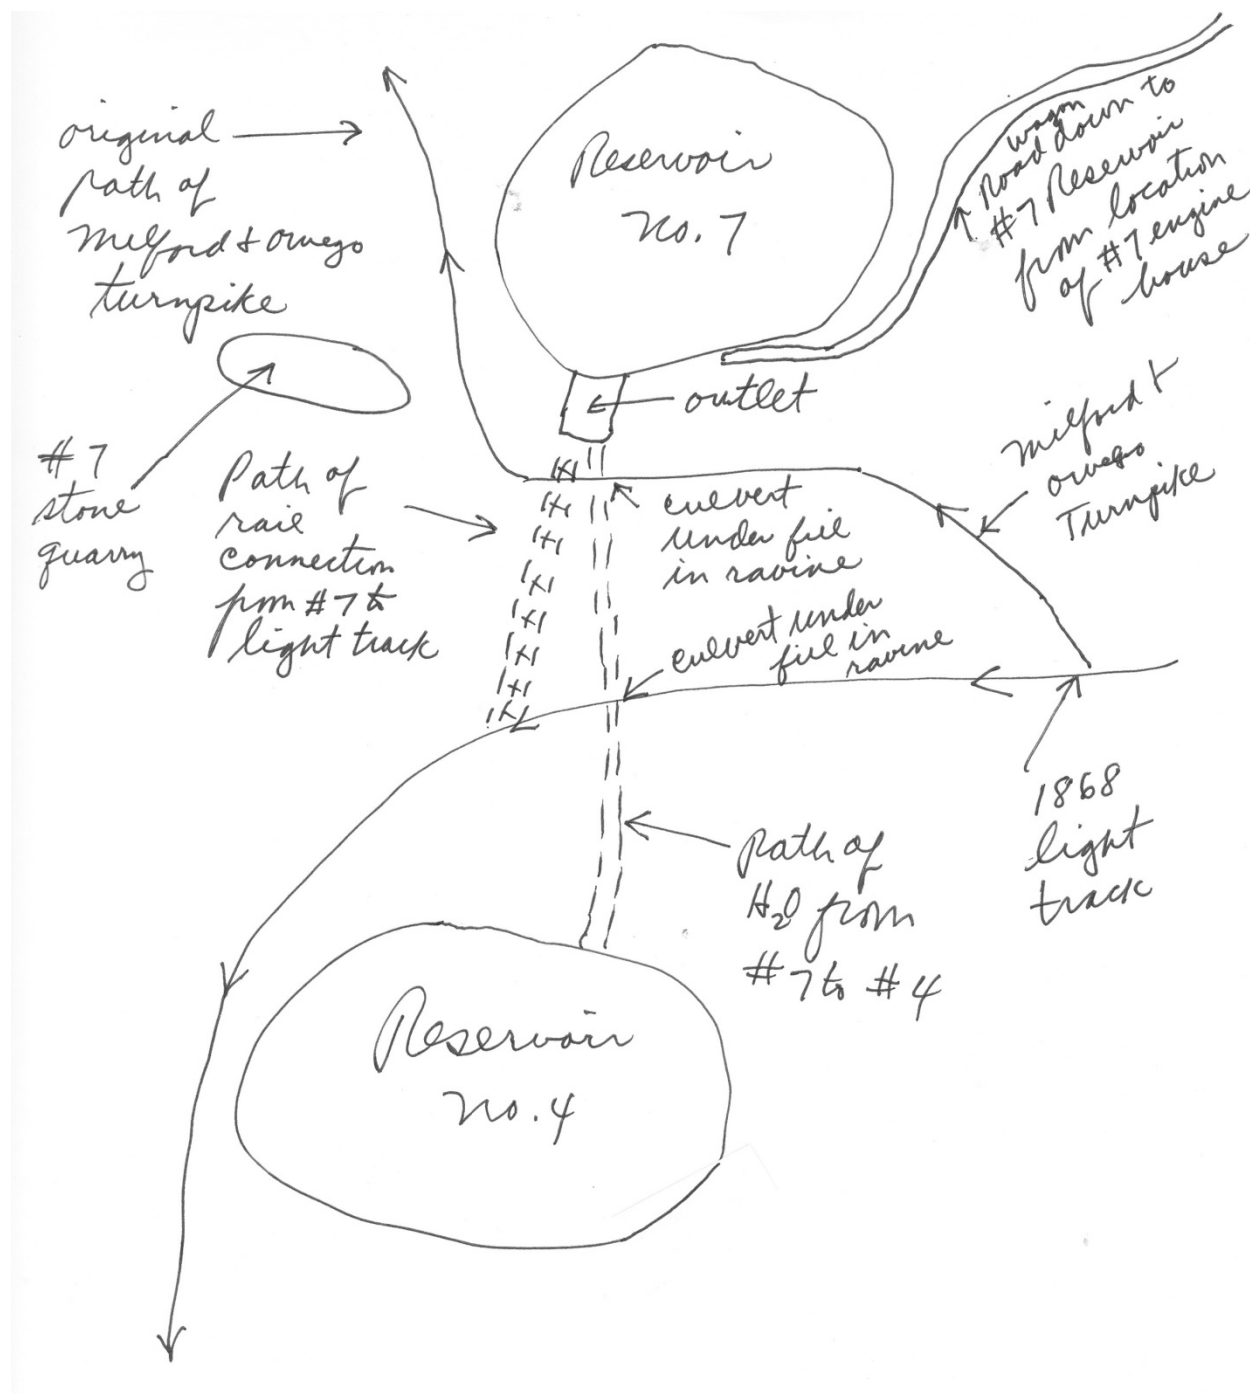 original
path of
Milford & Owego
turnpike
Reservoir
No. 7
wagon
Road down to
#7 Reservoir
from location
of #7 engine
house
outlet
Milford &
Owego
Turnpike
#7
stone
quarry
Path of
rail
connection
from #7 to
light track
culvert
under fill
in ravine
culvert under
fill in
ravine
1868
light
track
Path of
H₂O from
#7 to #4
Reservoir
No. 4